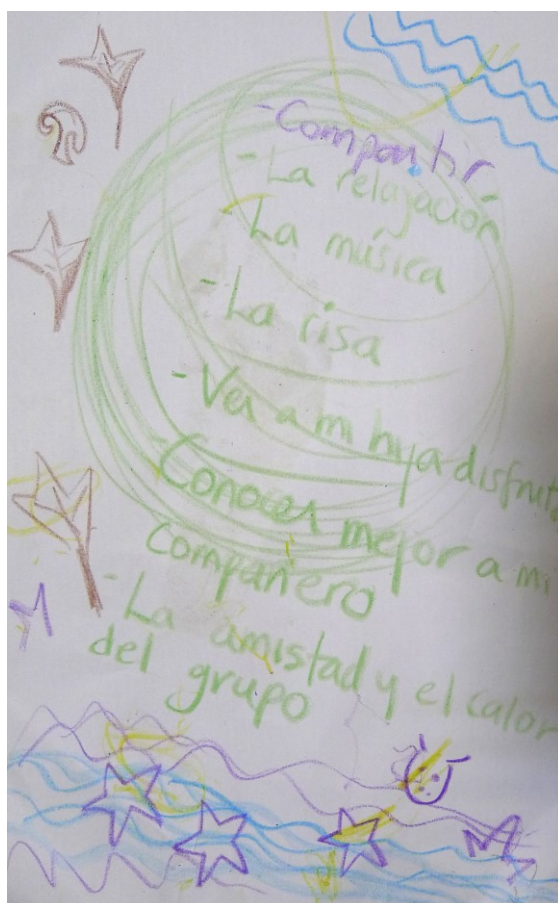 -Compartir
-La relajación
-La música
-La risa
-Ver a mi hija disfruta
-Conocer mejor a mi
compañero
-La amistad y el calor
del grupo